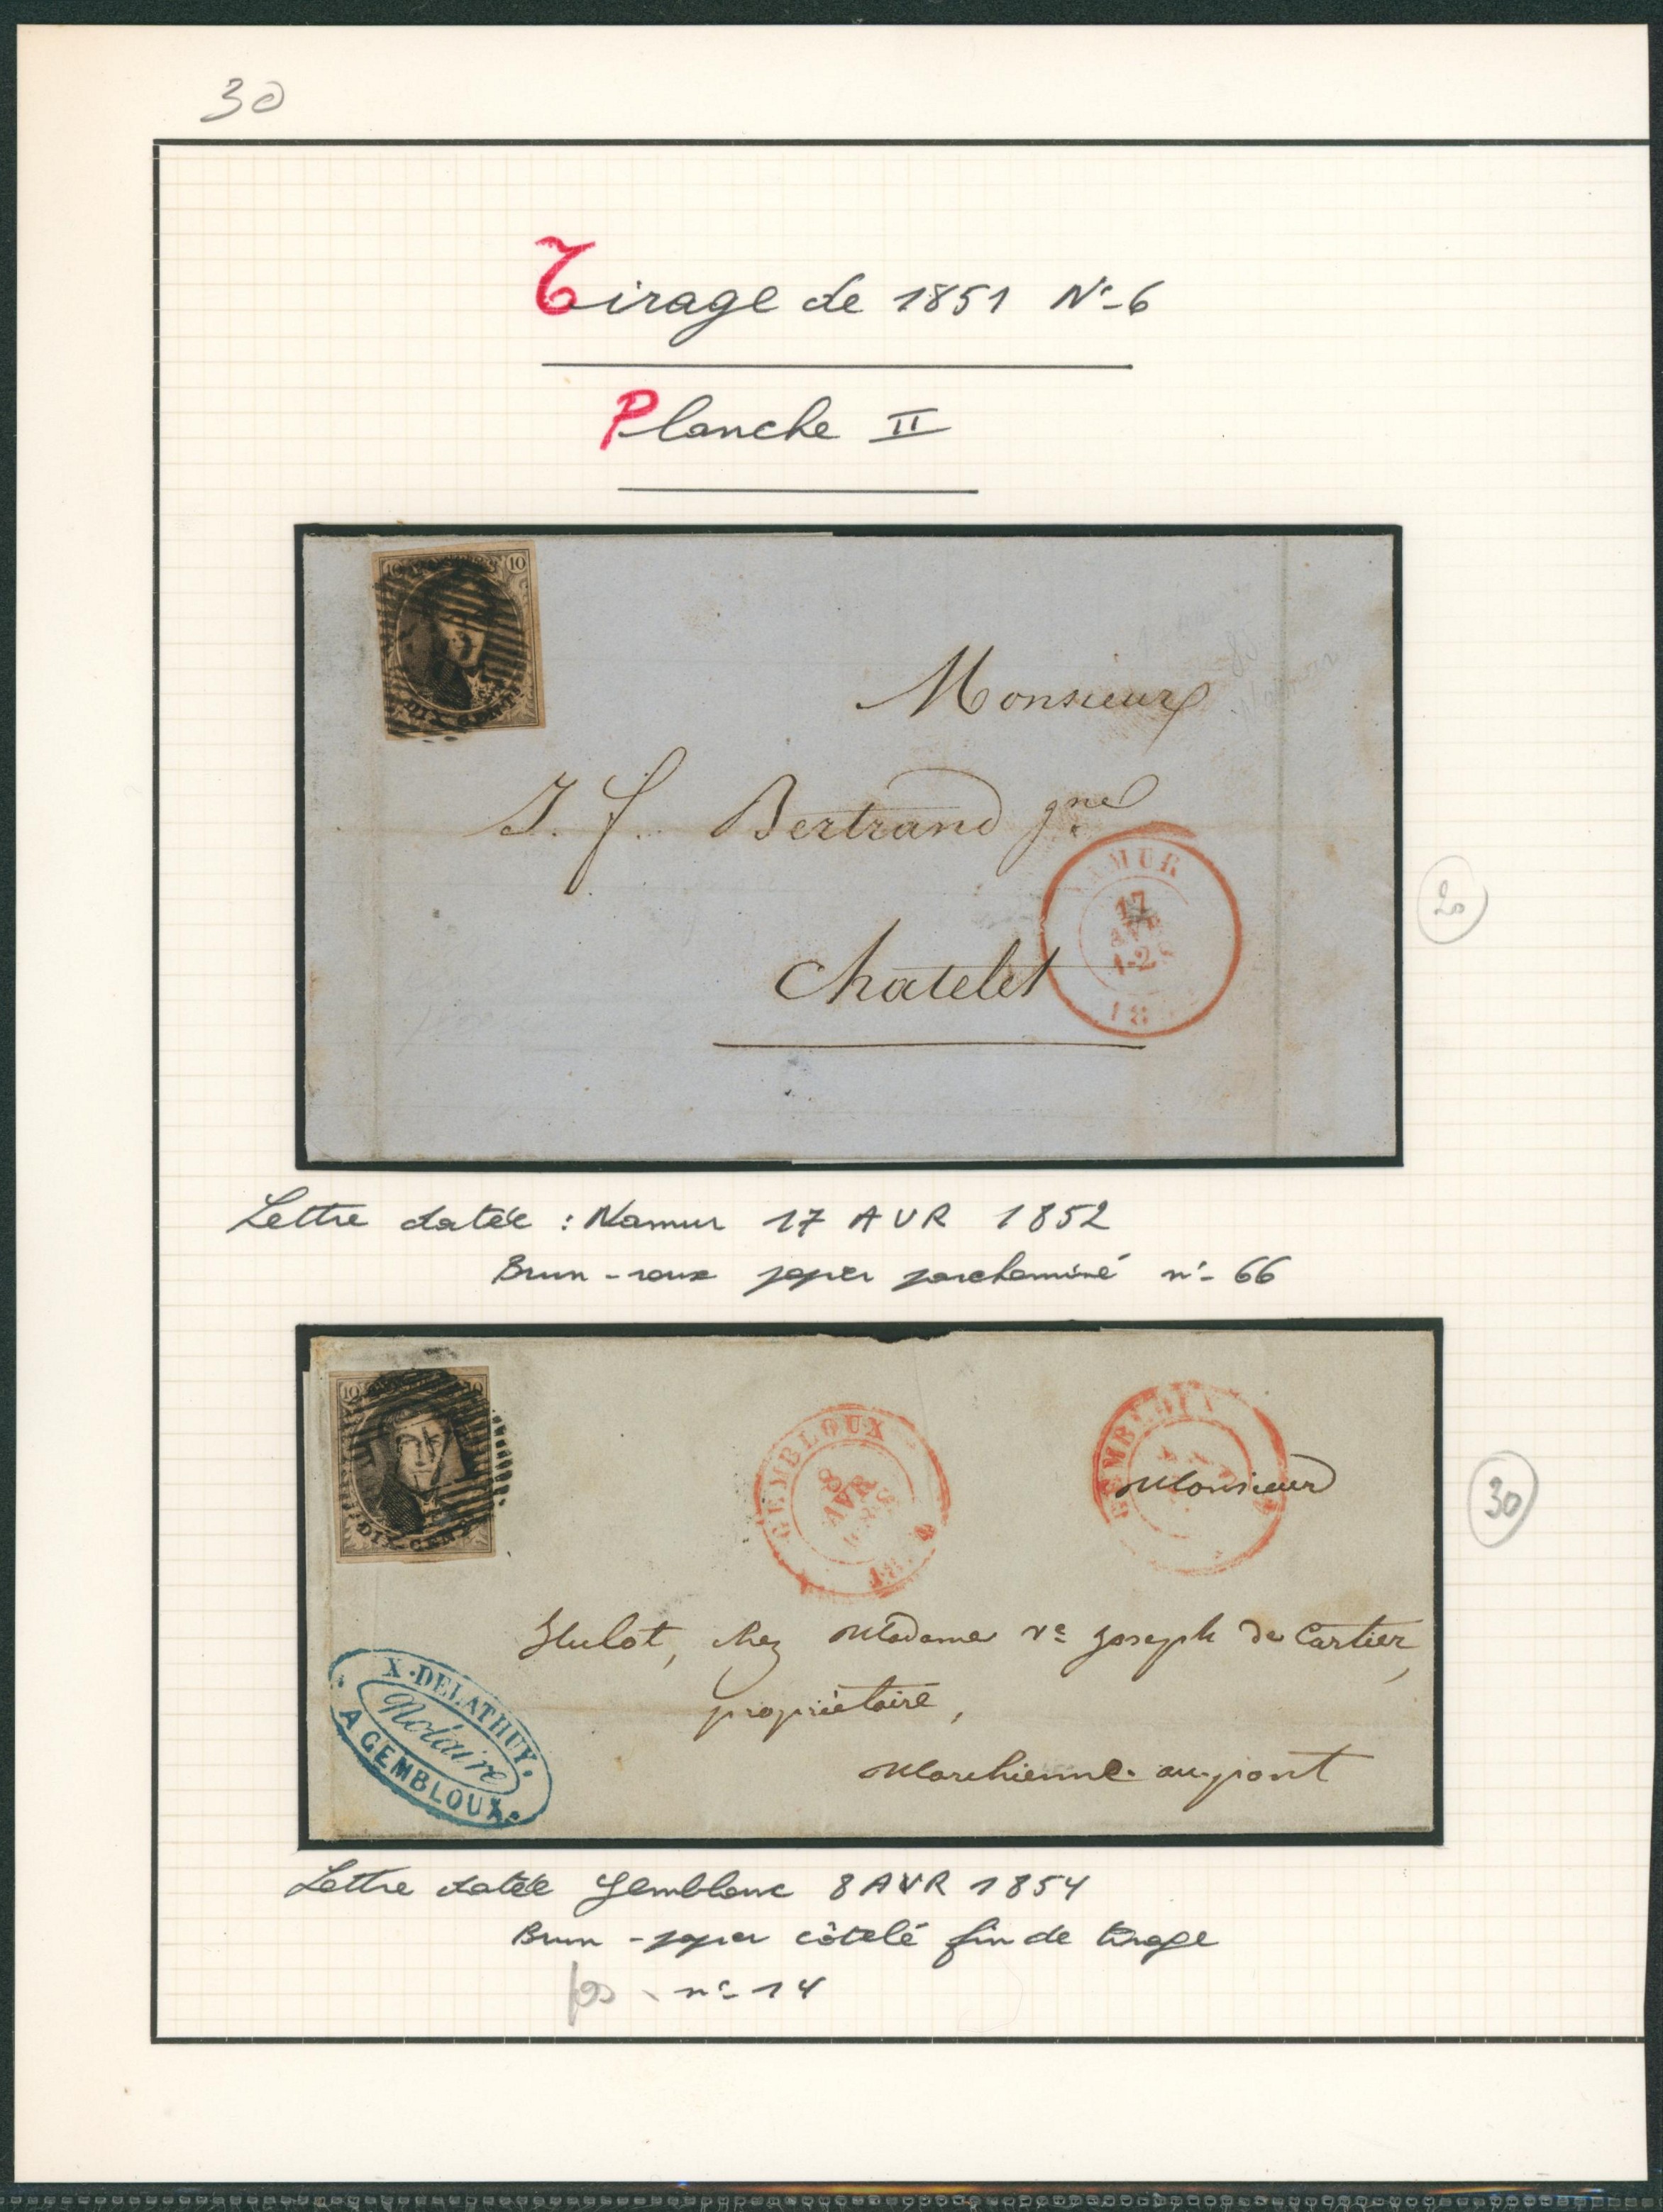 30
Tirage de 1851 N°-6
Planche II
10 10
DIX CENTS
Monsieur
J. f. Bertrand gne
Chatelet
NAMUR
17
AVR
1-2
18
20
Lettre datée : Namur 17 AVR 1852
Brun-roux papier parcheminé n°- 66
10 10
DIX CENTS
GEMBLOUX
8
AVR
18
GEMBLOUX
Monsieur
30
Hulot, chez Madame Ve Joseph de Cartier,
propriétaire,
Marchienne-au-pont
X. DELATHUY.
Notaire
A GEMBLOUX.
Lettre datée Gembloux 8 AVR 1854
Brun - papier côtelé fin de tirage
n°- 14